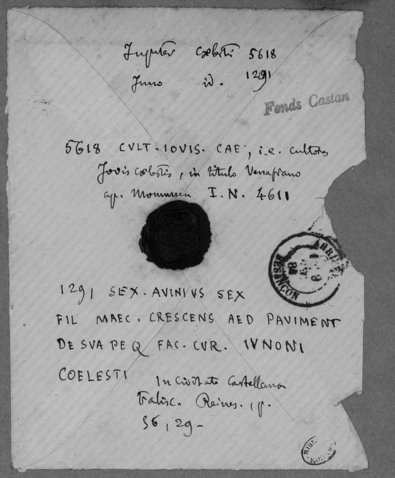 Jupiter Cœlesti 5618
Juno id. 1291
Fonds Castan
5618 CVLT. IOVIS. CAE, i.e. cultores
Jovis cœlestis, in titulo Venafrano
ap. Mommsen I.N. 4611
BESANÇON
1291 SEX. AVINIVS SEX
FIL MAEC. CRESCENS AED PAVIMENT
DE SVA PEQ FAC. CVR. IVNONI
COELESTI In Civitate Castellana
Falisc. Reines. , p.
56, 29-